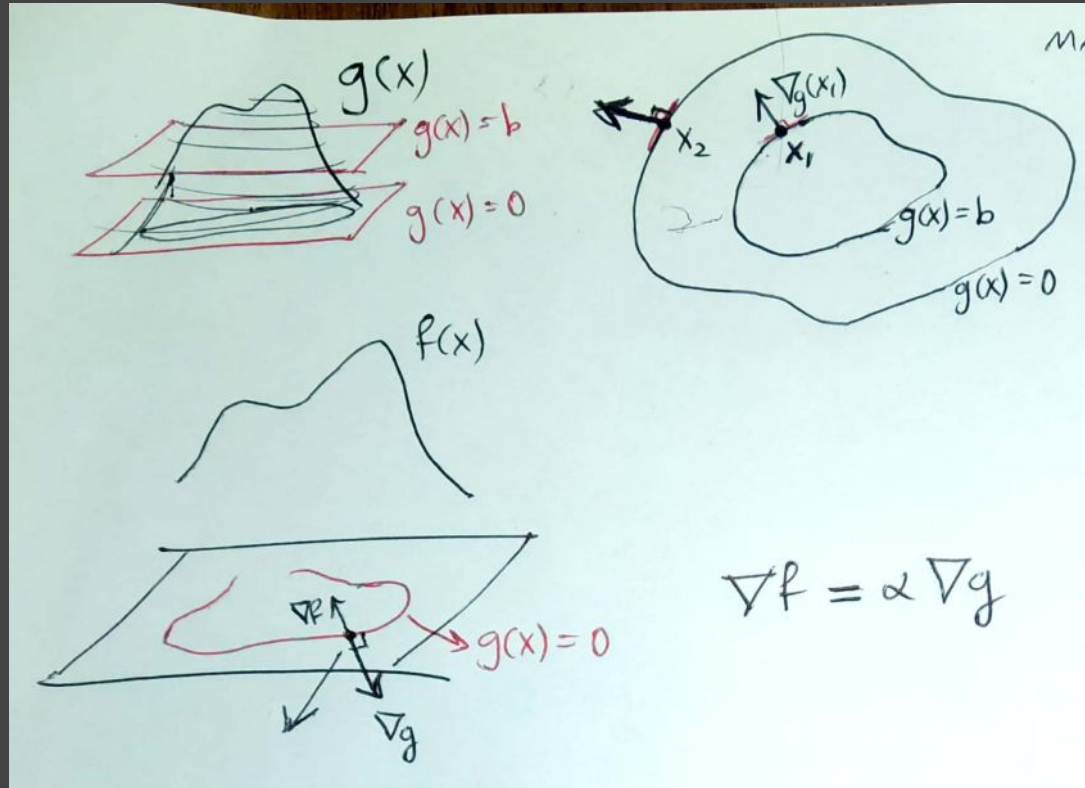 g(x)
g(x) = b
g(x) = 0
∇g(x₁)
x₂
x₁
g(x) = b
g(x) = 0
f(x)
∇f
g(x) = 0
∇g
∇f = α ∇g